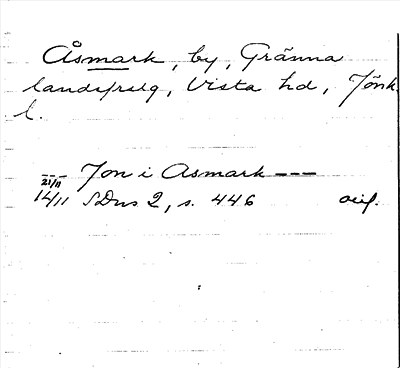 Åsmark, by, Gränna
landsfrslg, Vista hd, Jönk.
l.
--- Jon i Asmark ---
21/11
1411 SDns 2, s. 446 oeif.